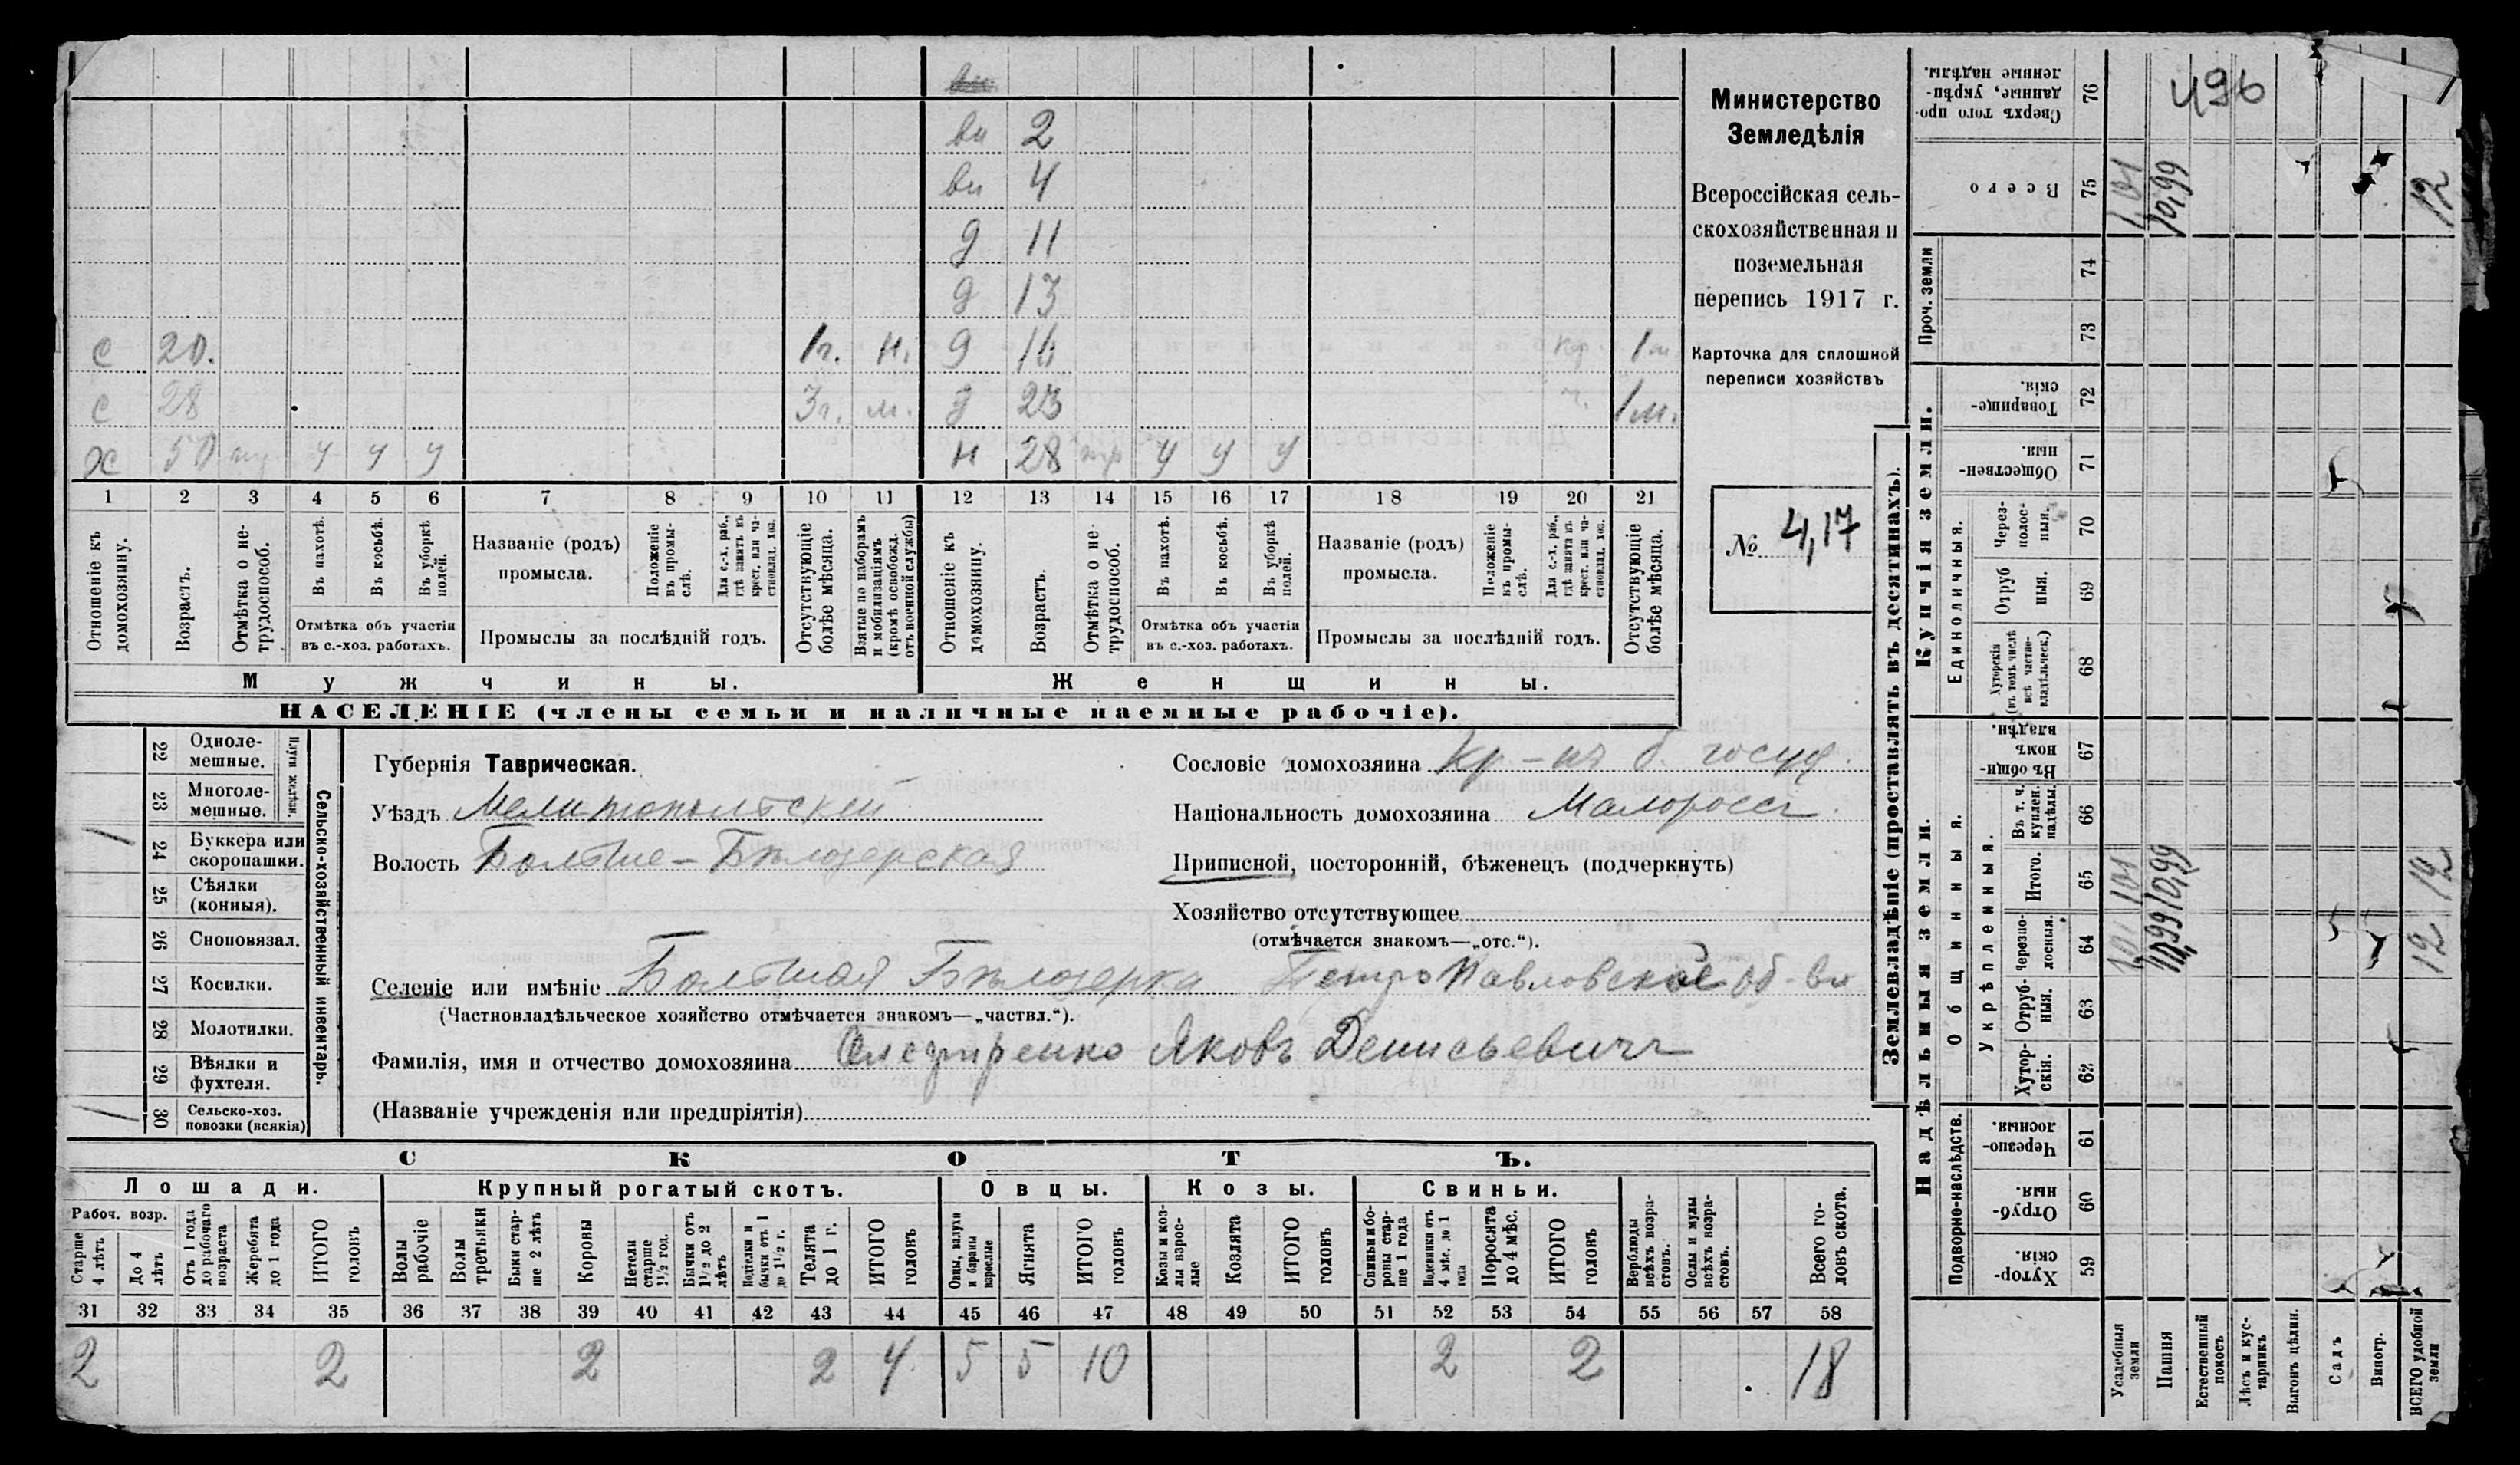 вн 2
вн 4
д 11
д 13
с 20. 1г. н. д 16 кр 1 м
с 28 3г. м. д 23 ч. 1м.
х 50 у у у н 28 нтр у у у
1 2 3 4 5 6 7 8 9 10 11 12 13 14 15 16 17 18 19 20 21
Отношеніе къ домохозяину.
Возрастъ.
Отмѣтка о не-трудоспособ.
Въ пахотѣ.
Въ косьбѣ.
Въ уборкѣ полей.
Отмѣтка объ участіи
въ с.-хоз. работахъ.
Названіе (родъ)
промысла.
Положеніе въ промы-слѣ.
Для с.-х. раб., гдѣ занятъ въ крест. или ча-стновлад. хоз.
Промыслы за послѣдній годъ.
Отсутствующіе болѣе мѣсяца.
Взятые по наборамъ и мобилизаціямъ (кромѣ освобожд. отъ военной службы)
Отношеніе къ домохозяину.
Возрастъ.
Отмѣтка о не-трудоспособ.
Въ пахотѣ.
Въ косьбѣ.
Въ уборкѣ полей.
Отмѣтка объ участіи
въ с.-хоз. работахъ.
Названіе (родъ)
промысла.
Положеніе въ промы-слѣ.
Для с.-х. раб., гдѣ занята въ крест. или ча-стновлад. хоз.
Промыслы за послѣдній годъ.
Отсутствующіе болѣе мѣсяца.
Мужчины.
Женщины.
НАСЕЛЕНІЕ (члены семьи и наличные наемные рабочіе).
Министерство
Земледѣлія
Всероссійская сель-
скохозяйственная и
поземельная
перепись 1917 г.
Карточка для сплошной
переписи хозяйствъ
№ 417
22 Одноле-мешные.
23 Многоле-мешные.
Плуги желѣзн.
24 Буккера или скоропашки. 1
25 Сѣялки (конныя).
26 Сноповязал.
27 Косилки.
28 Молотилки.
29 Вѣялки и фухтеля.
30 Сельско-хоз. повозки (всякія) 1
Сельско-хозяйственный инвентарь.
Губернія Таврическая.
Уѣздъ Мелитопольскій
Волость Больше-Бѣлозерская
Сословіе домохозяина Кр-нъ б. госуд.
Національность домохозяина Малороссъ.
Приписной, посторонній, бѣженецъ (подчеркнуть)
Хозяйство отсутствующее
(отмѣчается знакомъ—„отс.“).
Селеніе или имѣніе Большая Бѣлозерка Петропавловское об-во
(Частновладѣльческое хозяйство отмѣчается знакомъ—„частвл.“).
Фамилія, имя и отчество домохозяина Яковъ Денисьевичъ
(Названіе учрежденія или предпріятія)
СКОТЪ.
Лошади. Крупный рогатый скотъ. Овцы. Козы. Свиньи.
Рабоч. возр.
Старше 4 лѣтъ
До 4 лѣтъ
Отъ 1 года до рабочаго возраста
Жеребята до 1 года
ИТОГО головъ
Волы рабочіе
Волы третьяки
Быки стар-ше 2 лѣтъ
Коровы
Нетели старше 1½ год.
Бычки отъ 1½ до 2 лѣтъ
Подтелки и бычки отъ 1 до 1½ г.
Телята до 1 г.
ИТОГО головъ
Овцы, валухи и бараны взрослые
Ягнята
ИТОГО головъ
Козы и коз-лы взрос-лые
Козлята
ИТОГО головъ
Свиньи и бо-ровы стар-ше 1 года
Подсвинки отъ 4 мѣс. до 1 года
Поросята до 4 мѣс.
ИТОГО головъ
Верблюды всѣхъ возра-стовъ.
Ослы и мулы всѣхъ возра-стовъ.
Всего го-ловъ скота.
31 32 33 34 35 36 37 38 39 40 41 42 43 44 45 46 47 48 49 50 51 52 53 54 55 56 57 58
2 2 2 2 4 5 5 10 2 2 18
Землевладѣніе (проставлять въ десятинахъ).
Надѣльныя земли.
Купчія земли.
Проч. земли
Подворно-наслѣдств.
Общинныя.
Укрѣпленныя.
Единоличныя.
Сверхъ того про-данные, укрѣп-ленные надѣлы. 76 496
Всего 75 1,01 10,99 12
74
73
Товарище-скія. 72
Обществен-ныя. 71
Через-полос-ныя. 70
Отруб ныя. 69
Хуторскія (въ томъ числѣ всѣ частно-владѣльческ.) 68
Въ общи-номъ владѣн. 67
Въ т. ч. куплен. надѣлы. 66
Итого. 65 101 10,99 12
Черезпо-лосныя. 64 101 10,99 12
Отруб-ныя. 63
Хутор-скія. 62
Черезпо-лосныя. 61
Отруб-ныя. 60
Хутор-скія. 59
Усадебныя земли
Пашня
Естественный покосъ
Лѣсъ и кус-тарникъ
Выгонъ цѣлин.
Садъ
Виногр.
ВСЕГО удобной земли